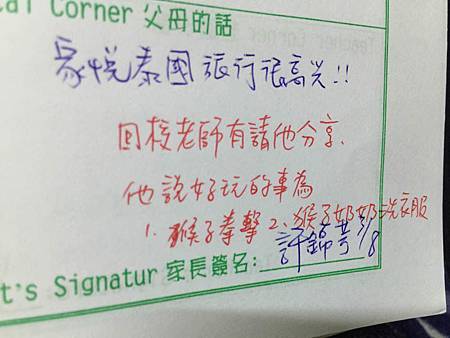 al Corner 父母的話
家悅泰國旅行很高興!!
回校老師有請他分享、
他說好玩的事為
1. 猴子拳擊 2、猴子奶奶洗衣服
許錦芳 3/8
t's Signatur 家長簽名: